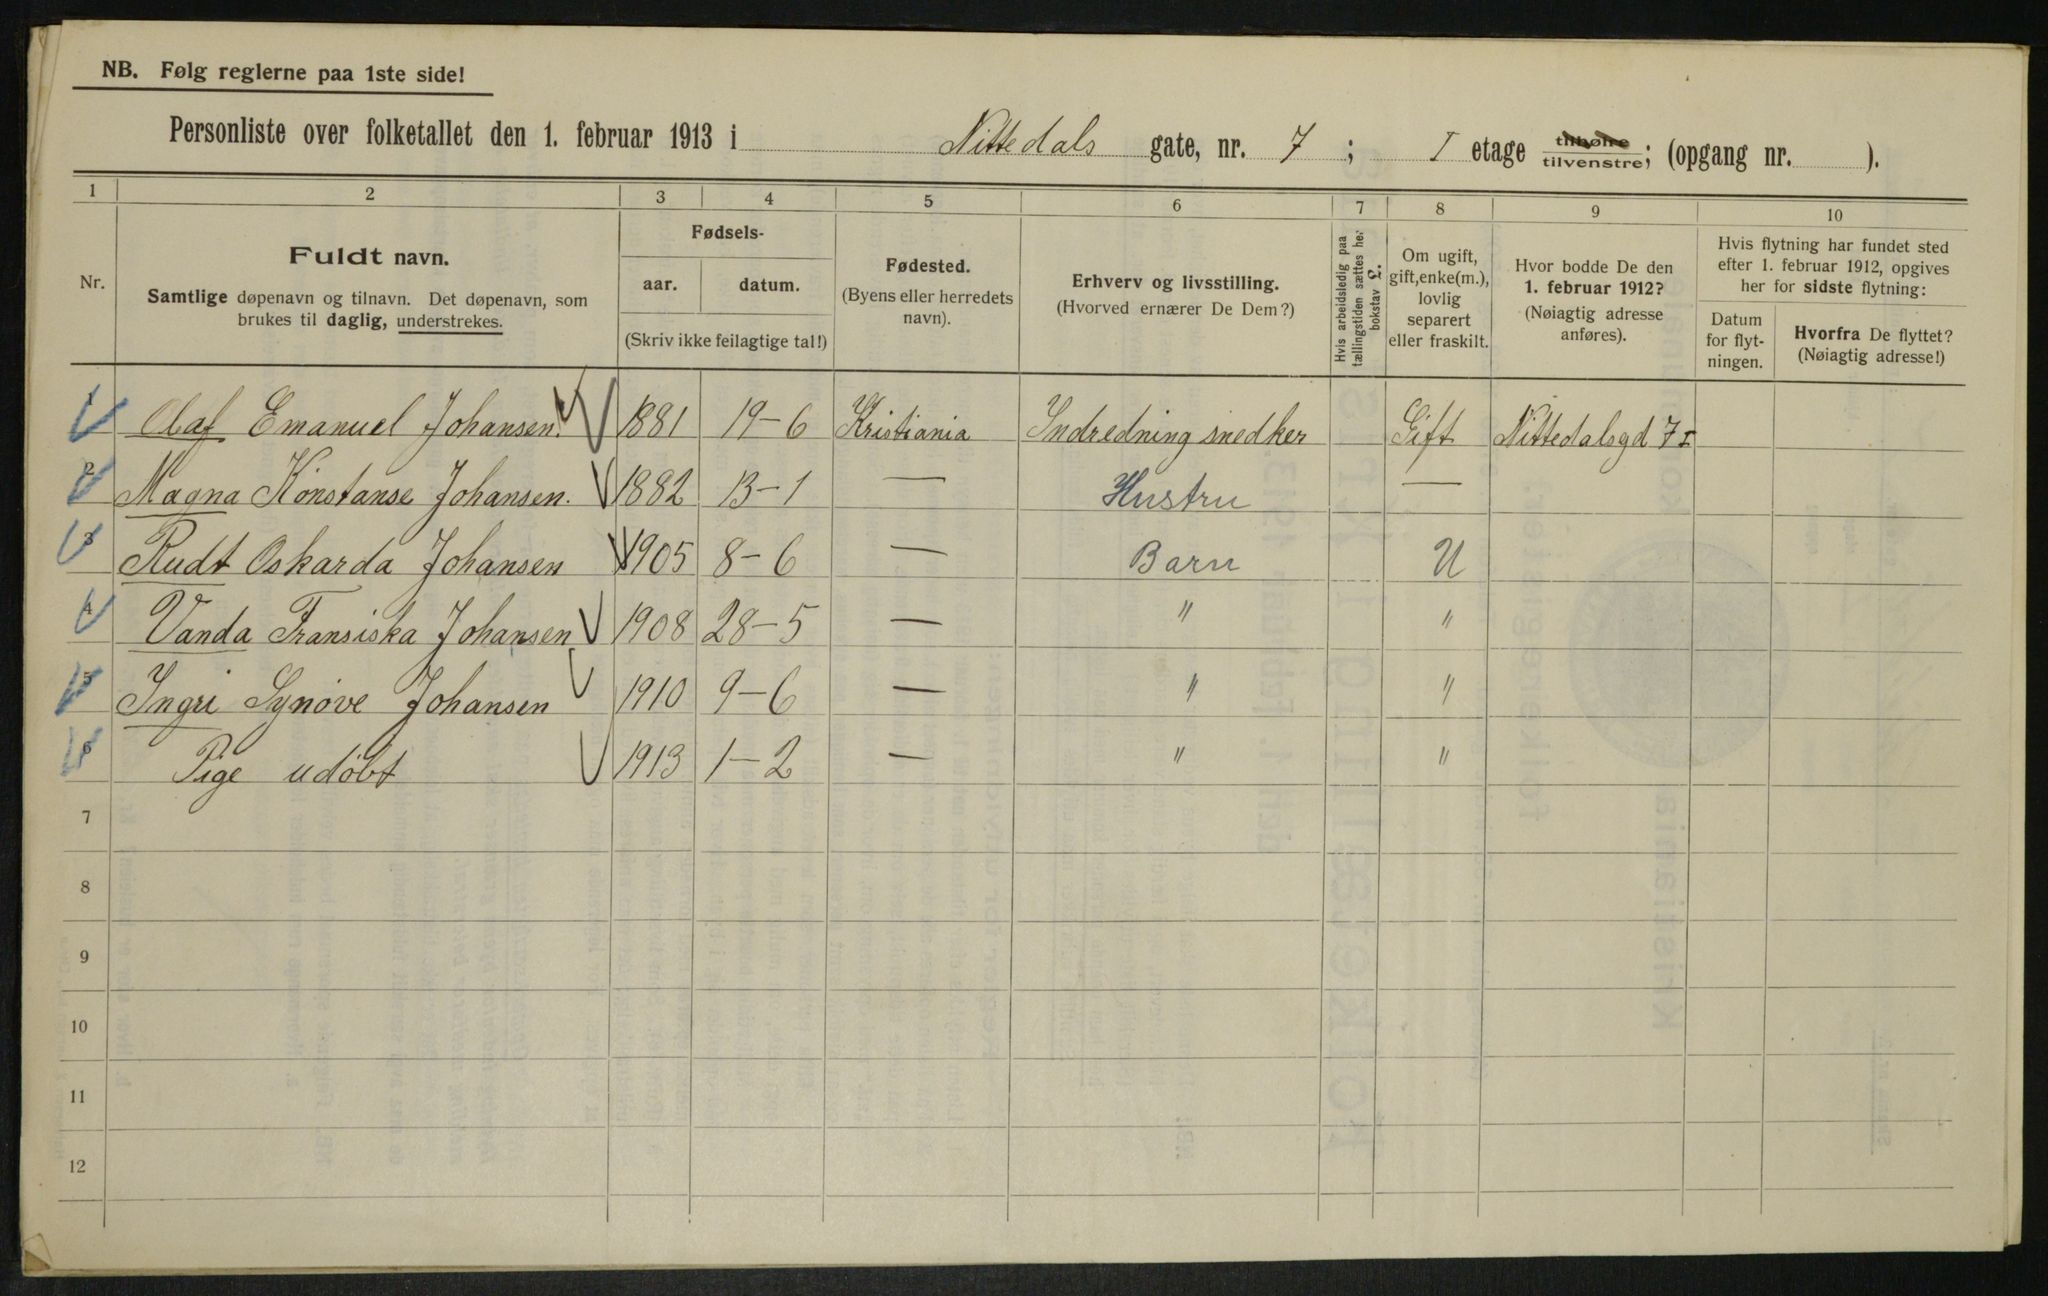 NB. Følg reglerne paa 1ste side!
Personliste over folketallet den 1. februar 1913 i Nittedals gate, nr. 7 ; I etage tilhøire tilvenstre; (opgang nr. ).
1 2 3 4 5 6 7 8 9 10
Nr.
Fuldt navn.
Samtlige døpenavn og tilnavn. Det døpenavn, som
brukes til daglig, understrekes.
Fødsels-
aar. datum.
(Skriv ikke feilagtige tal!)
Fødested.
(Byens eller herredets
navn).
Erhverv og livsstilling.
(Hvorved ernærer De Dem?)
Hvis arbeidsledig paa
tællingstiden sættes her
bokstav L.
Om ugift,
gift, enke(m.),
lovlig
separert
eller fraskilt.
Hvor bodde De den
1. februar 1912?
(Nøiagtig adresse
anføres).
Hvis flytning har fundet sted
efter 1. februar 1912, opgives
her for sidste flytning:
Datum
for flyt-
ningen.
Hvorfra De flyttet?
(Nøiagtig adresse!)
1 Olaf Emanuel Johansen. 1881 19-6 Kristiania Indredning snedker Gift Nittedalsgd 7 I
2 Magna Konstanse Johansen. 1882 13-1 — Hustru —
3 Rudt Oskarda Johansen 1905 8-6 — Barn U
4 Vanda Fransiska Johansen 1908 28-5 — " "
5 Ingri Synøve Johansen 1910 9-6 — " "
6 Pige udøbt 1913 1-2 — " "
7
8
9
10
11
12